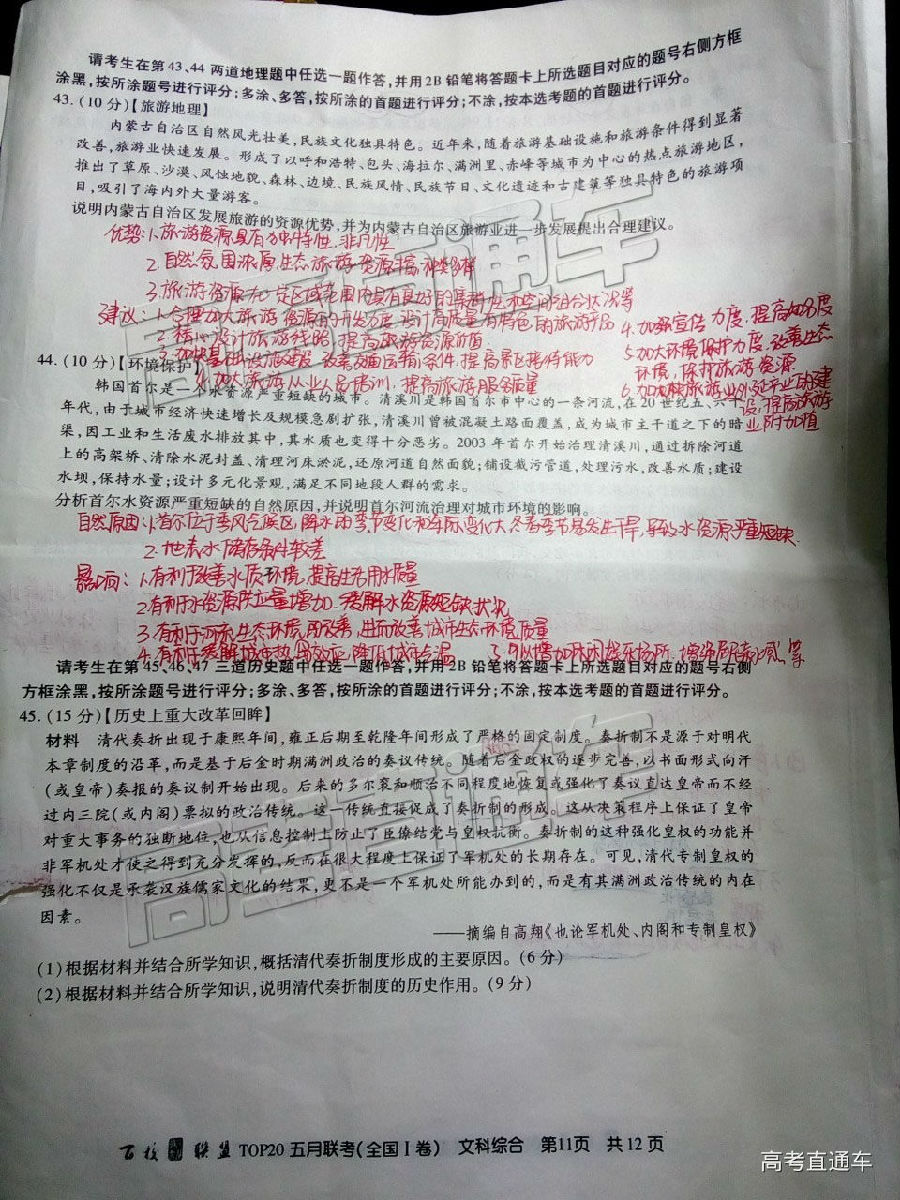 请考生在第43、44两道地理题中任选一题作答,并用2B铅笔将答题卡上所选题目对应的题号右侧方框
涂黑,按所涂题号进行评分;多涂、多答,按所涂的首题进行评分;不涂,按本选考题的首题进行评分。
43.(10分)【旅游地理】
内蒙古自治区自然风光壮美,民族文化独具特色。近年来,随着旅游基础设施和旅游条件得到显著
改善,旅游业快速发展。形成了以呼和浩特、包头、海拉尔、满洲里、赤峰等城市为中心的热点旅游地区,
推出了草原、沙漠、风蚀地貌、森林、边境、民族风情、民族节日、文化遗迹和古建筑等独具特色的旅游项
目,吸引了海内外大量游客。
说明内蒙古自治区发展旅游的资源优势,并为内蒙古自治区旅游业进一步发展提出合理建议。
优势:1.旅游资源具有独特性、非凡性
2.自然氛围浓厚,生态旅游资源丰富,种类多样
3.旅游资源在一定区域范围内具有良好的集群性和空间组合状况等
建议:1.合理加大旅游资源的开发力度,设计高质量有特色的旅游产品
2.精心设计旅游线路,提高旅游资源价值
3.加快基础设施建设,改善交通医疗条件,提高景区接待能力
4.加大旅游从业人员培训,提高旅游服务质量
4.加强宣传力度,提高知名度
5.加大环境保护力度,改善生态
环境,保护旅游资源
6.加大旅游业的延产业的建
设,提高旅游
业附加值
44.(10分)【环境保护】
韩国首尔是一个水资源严重短缺的城市。清溪川是韩国首尔市中心的一条河流,在20世纪五、六十
年代,由于城市经济快速增长及规模急剧扩张,清溪川曾被混凝土路面覆盖,成为城市主干道之下的暗
渠,因工业和生活废水排放其中,其水质也变得十分恶劣。2003年首尔开始治理清溪川,通过拆除河道
上的高架桥、清除水泥封盖、清理河床淤泥,还原河道自然面貌;铺设截污管道,处理污水,改善水质;建设
水坝,保持水量;设计多元化景观,满足不同地段人群的需求。
分析首尔水资源严重短缺的自然原因,并说明首尔河流治理对城市环境的影响。
自然原因:1.首尔位于季风气候区,降水的季节变化和年际变化大,冬春季节易发生干旱,导致水资源严重短缺
2.地表水储存条件较差
影响:1.有利于改善水质环境,提高生活用水质量
2.有利于水资源供应量增加,缓解水资源短缺状况
3.有利于河流生态环境的改善,进而改善城市生态环境质量
4.有利于缓解城市热岛效应,降低城市气温
5.可以增加休闲娱乐场所,增添周末动感等
请考生在第45、46、47三道历史题中任选一题作答,并用2B铅笔将答题卡上所选题目对应的题号右侧
方框涂黑,按所涂题号进行评分;多涂、多答,按所涂的首题进行评分;不涂,按本选考题的首题进行评分。
45.(15分)【历史上重大改革回眸】
材料 清代奏折出现于康熙年间,雍正后期至乾隆年间形成了严格的固定制度。奏折制不是源于对明代
本章制度的沿革,而是基于后金时期满洲政治的奏议传统。随着后金政权的逐步完善,以书面形式向汗
(或皇帝)奏报的奏议制开始出现。后来的多尔衮和顺治不同程度地恢复或强化了奏议直达皇帝而不经
过内三院(或内阁)票拟的政治传统。这一传统直接促成了奏折制的形成。这从决策程序上保证了皇帝
对重大事务的独断地位,也从信息控制上防止了臣僚结党与皇权抗衡。奏折制的这种强化皇权的功能并
非军机处才使之得到充分发挥的,反而在很大程度上保证了军机处的长期存在。可见,清代专制皇权的
强化不仅是承袭汉族儒家文化的结果,更不是一个军机处所能办到的,而是有其满洲政治传统的内在
因素。
——摘编自高翔《也论军机处、内阁和专制皇权》
(1)根据材料并结合所学知识,概括清代奏折制度形成的主要原因。(6分)
(2)根据材料并结合所学知识,说明清代奏折制度的历史作用。(9分)
百校联盟TOP20五月联考(全国Ⅰ卷) 文科综合 第11页 共12页
高考直通车